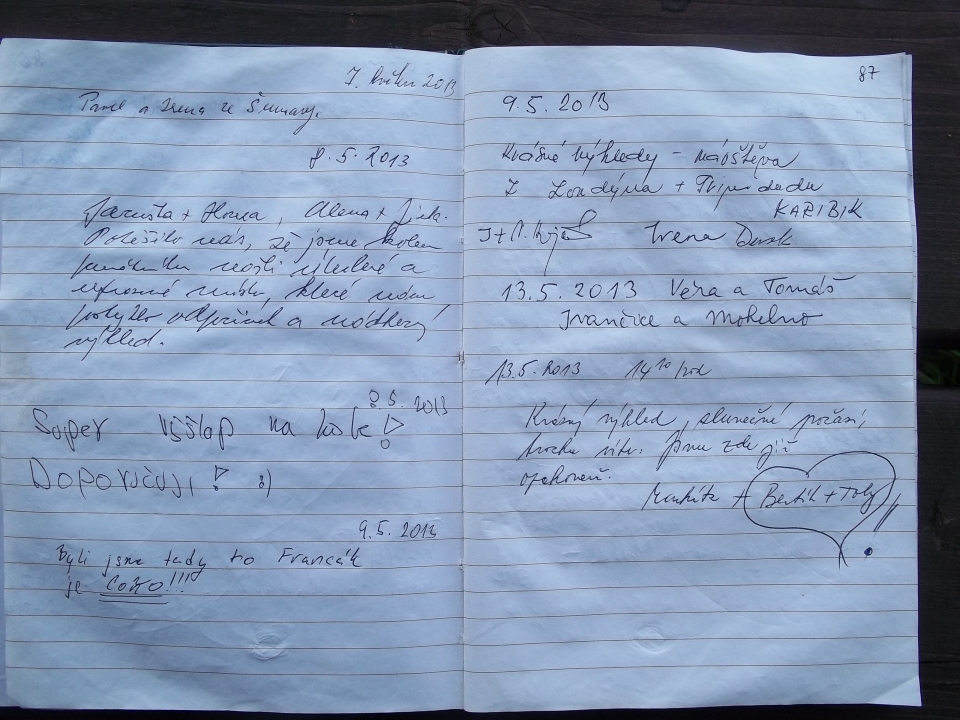 7. květn 2013
Pavel a Irena ze Šumavy.
8.5.2013
Jaruška + Honza, Alena + Jirk.
Potěšilo nás, že jsme kolem
památníku našli
upravené místo, které nám
poskytlo odpočinek a nádherný
výhled.
8.5.2013
Super výšlap na kole!
Doporučuji! :)
9.5.2013
Byli jsme tady ho Francák
je COZO!!!
87
9.5.2013
Krásné výhledy - návštěva
z Londýna + Tripidadu
KARIBIK
J+P. Irena
13.5.2013 Věra a Tomáš
Ivančice a Mohelno
13.5.2013 14 10
Krásný výhled, slunečné počasí,
trochu vítr. Jsme zde již
opakovaně.
Markéta + Bertík + Toby